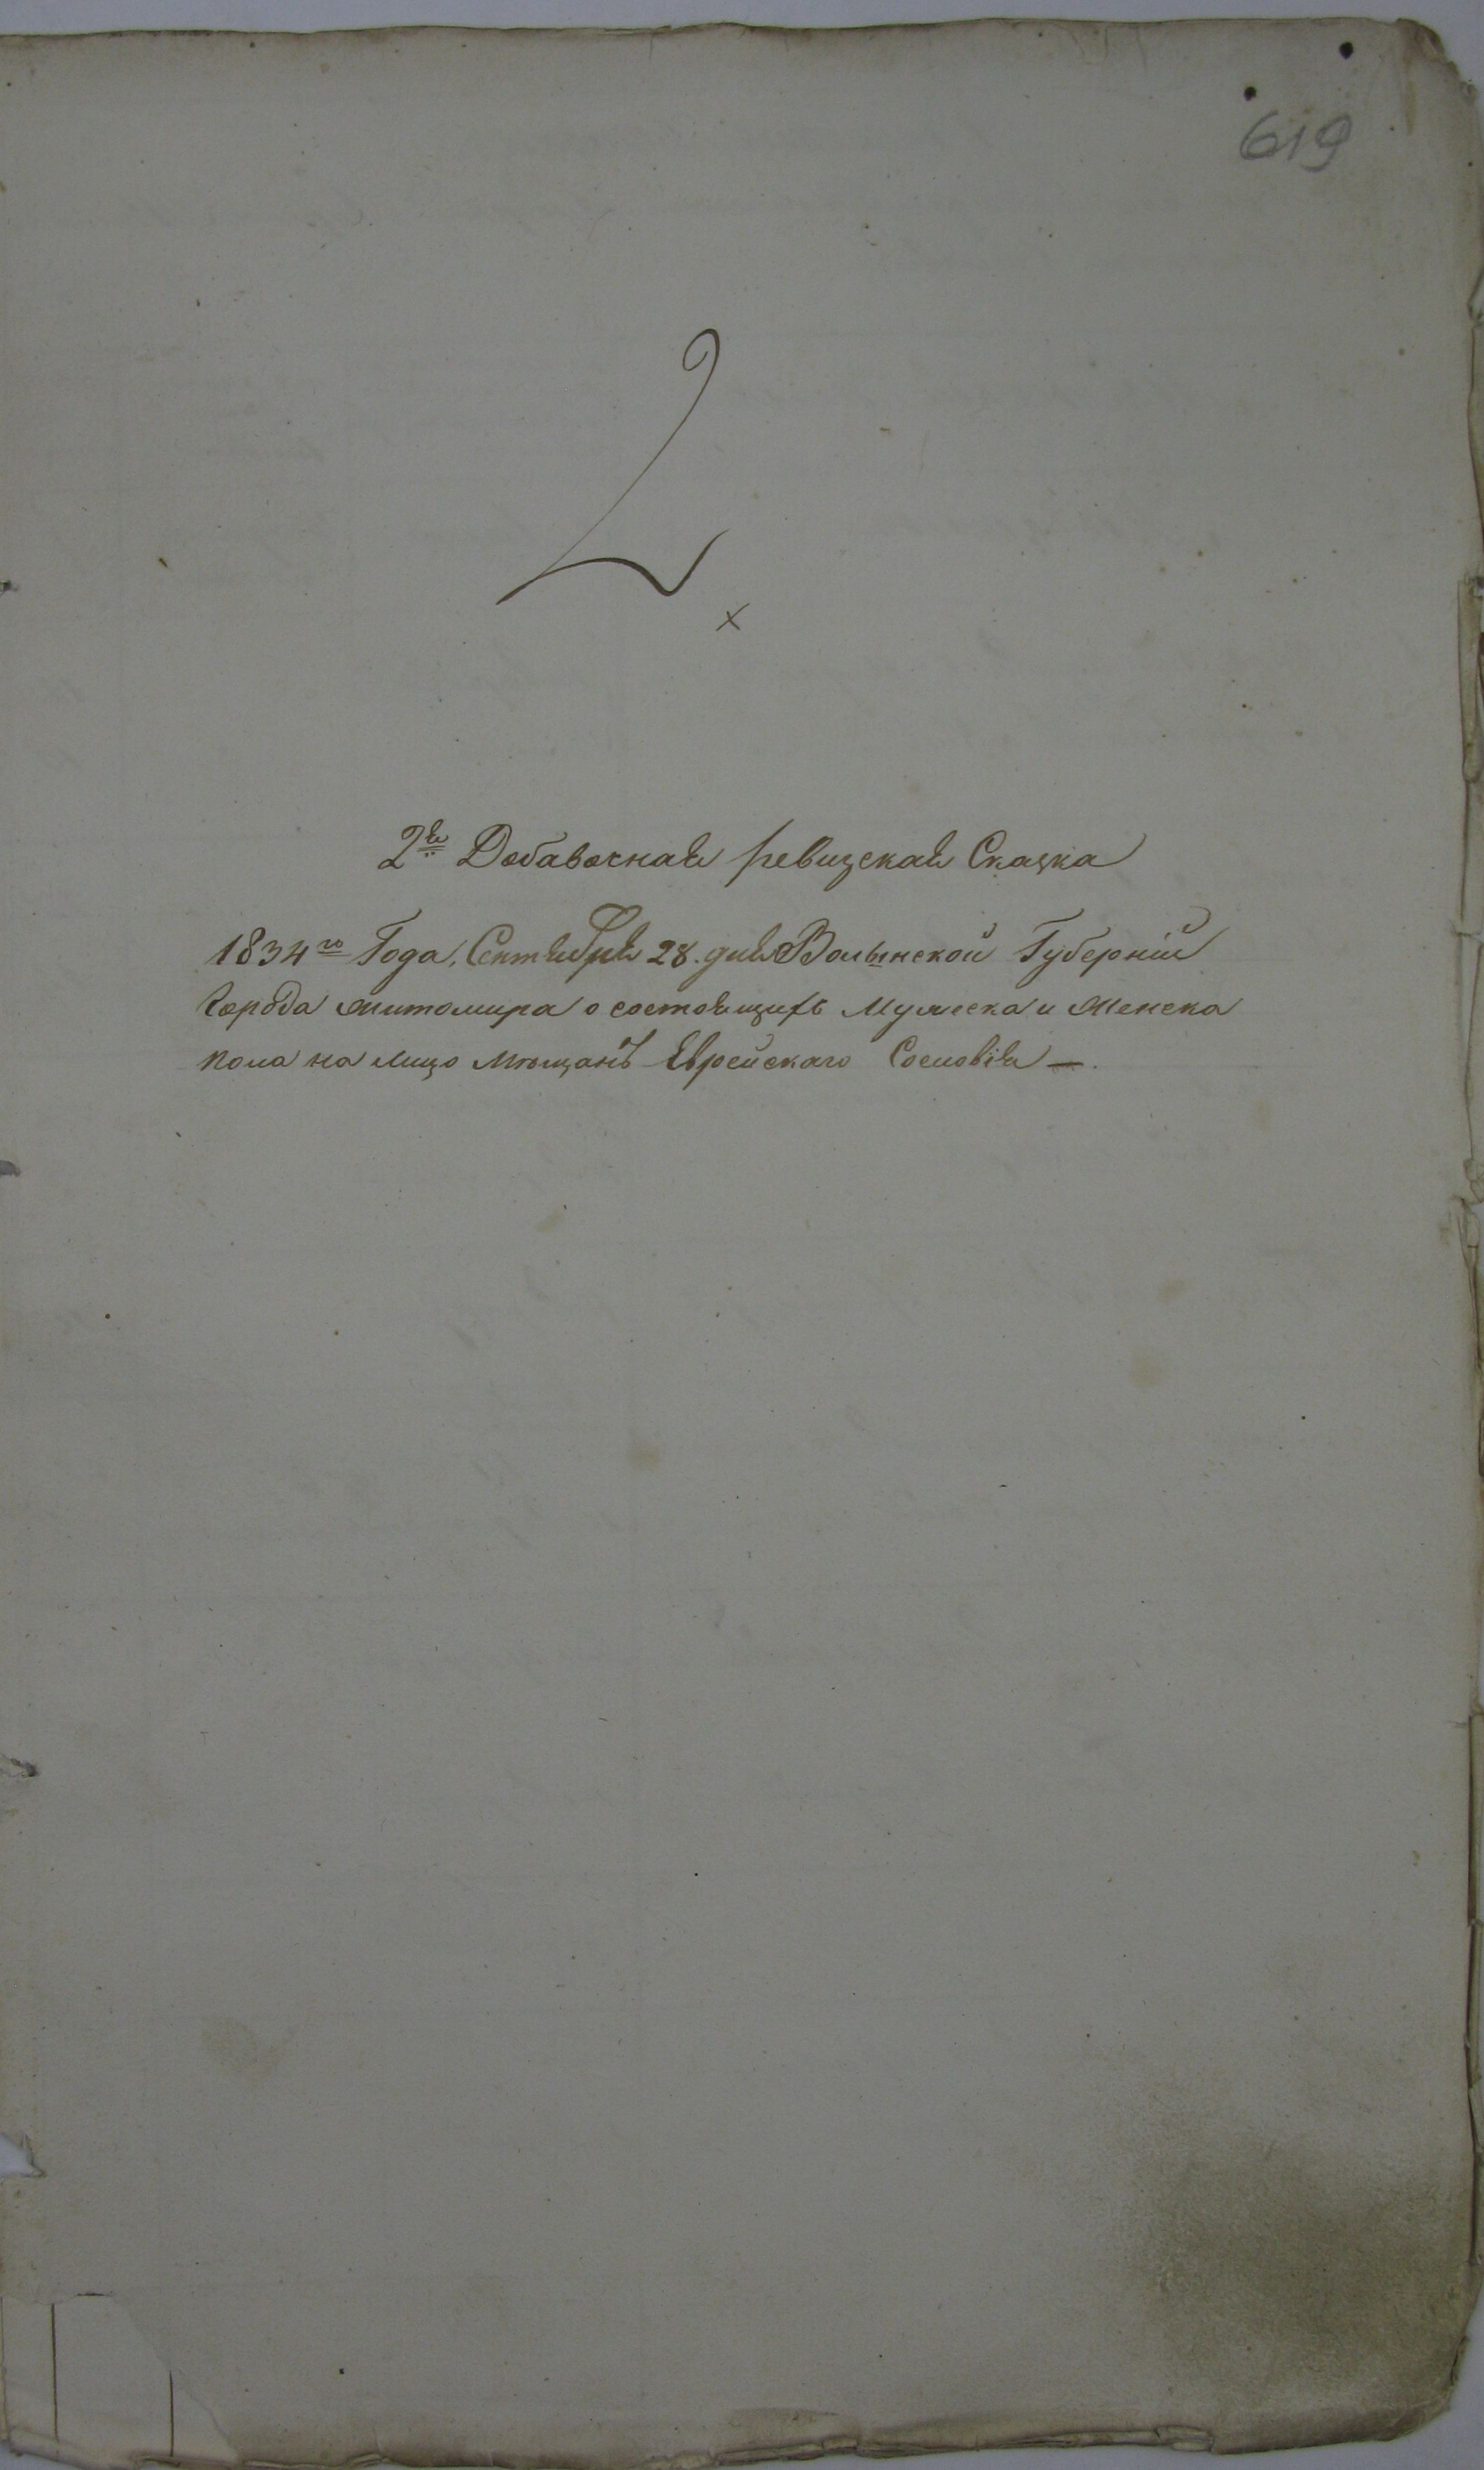 619
2
х
2я Добавочная ревизская Сказка
1834го Года, Сентября 28. дня Волынской Губерніи
города житомира о состоящихъ Мужеска и Женска
пола на лицо Мѣщанъ Еврейскаго Сословія —.